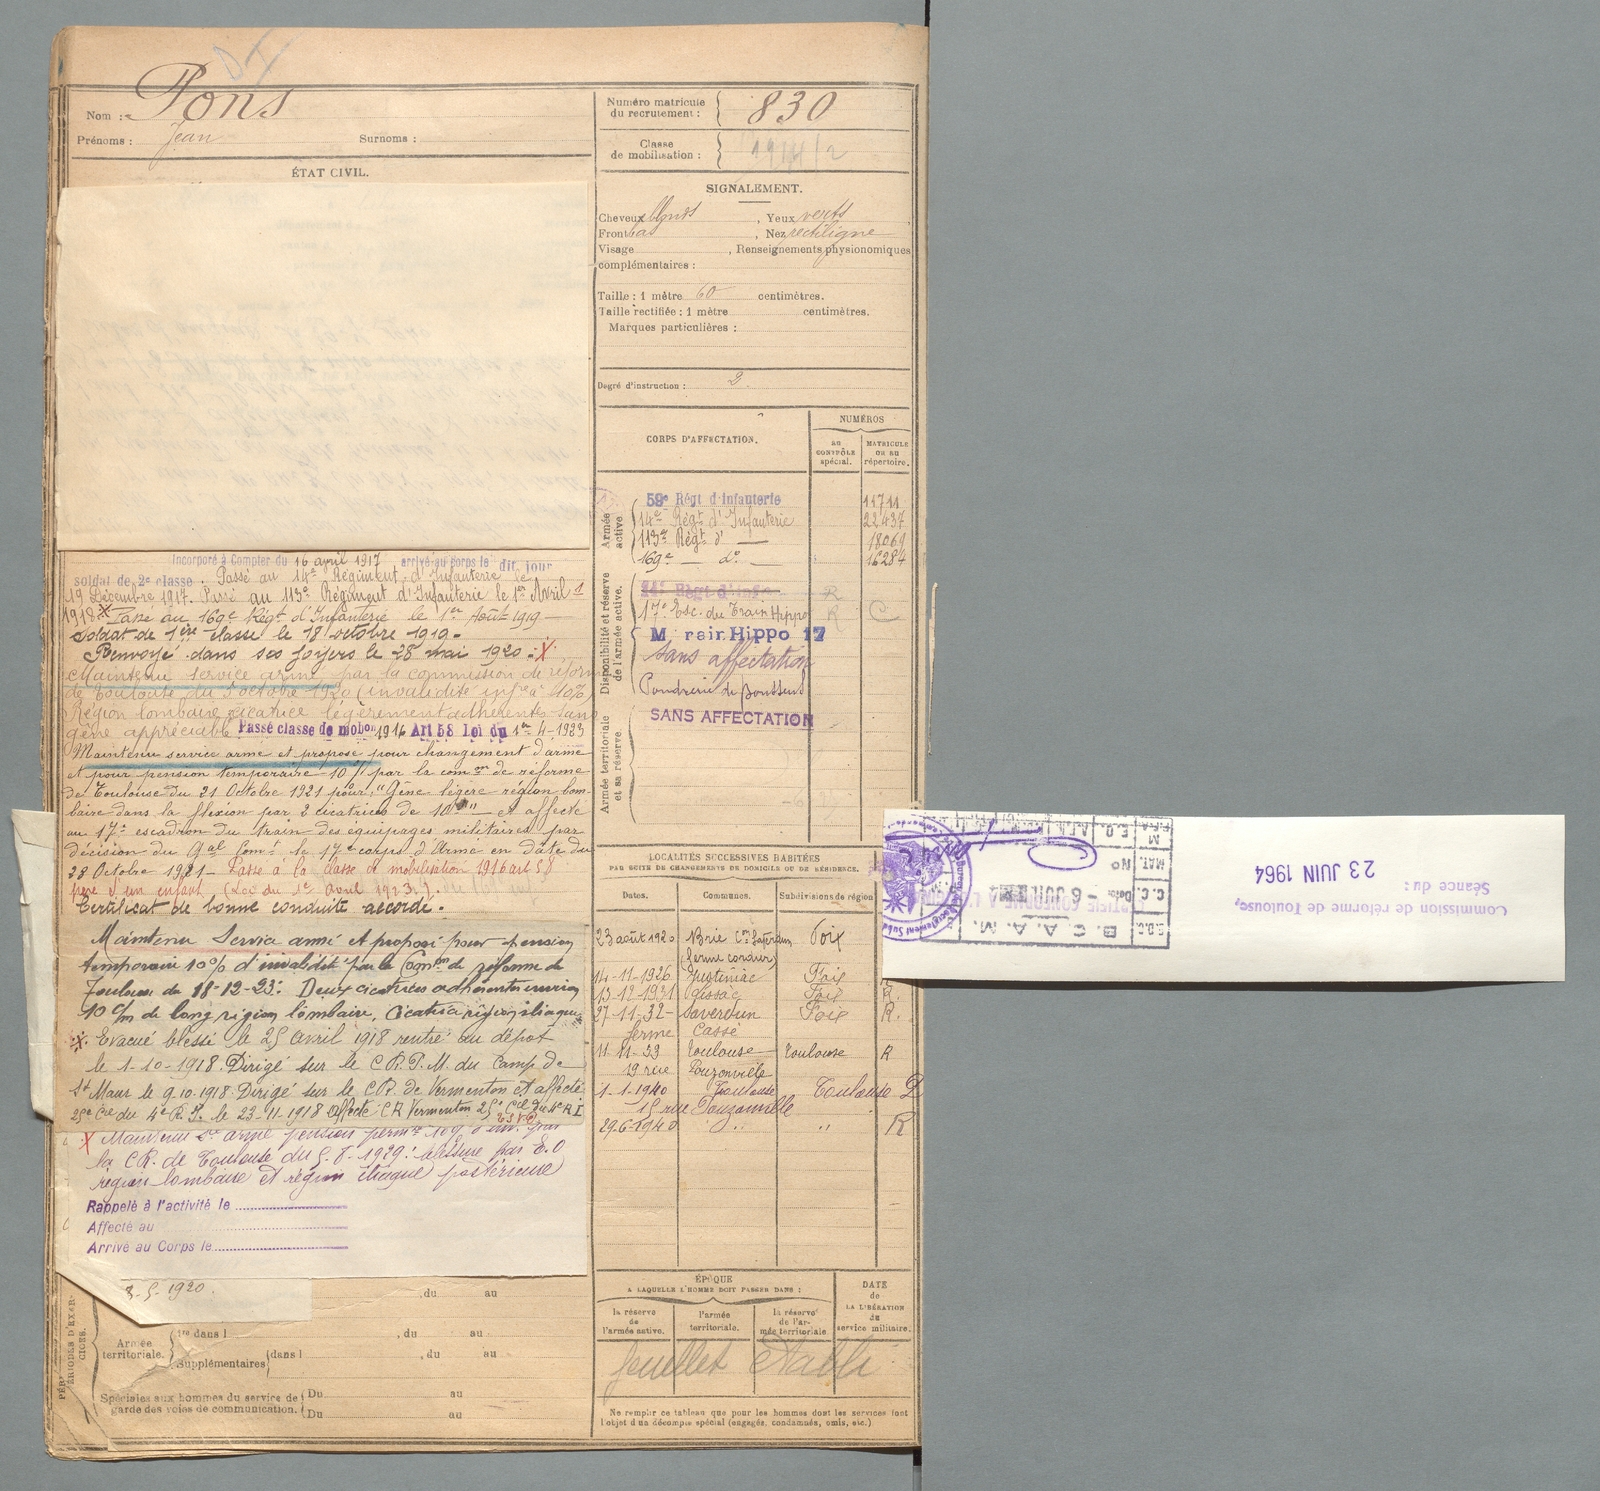 Nom : Pons
Prénoms : Jean Surnoms :
ÉTAT CIVIL.
Incorporé à Compter du 16 avril 1917 arrivé au corps le dit jour
soldat de 2e classe. Passé au 14e Régiment d'Infanterie le
19 Décembre 1917. Passé au 113e Régiment d'Infanterie le 1er Avril
1918. Passé au 169e Régt d'Infanterie le 1er Août 1919
Soldat de 1ère classe le 18 octobre 1919.
Renvoyé dans ses foyers le 28 mai 1920. X
Maintenu service armé par la commission de réforme
de Toulouse du 5 octobre 1920 (invalidité infre à 10%)
Région lombaire cicatrice légèrement adhérente sans
gêne appréciable. Passé classe de mobon 1916 Art 58 Loi du 1er-4-1923
Maintenu service armé et proposé pour changement d'arme
et pour pension temporaire 10 % par la comon de réforme
de Toulouse du 21 Octobre 1921 pour: "Gêne légère région lom-
baire dans la flexion par 2 cicatrices de 10 et affecté
au 17e escadron du train des équipages militaires par
décision du Gal Comt le 17e corps d'Armée en date du
28 Octobre 1921 - Passé à la classe de mobilisation 1916 art 58
père d'un enfant (Loi du 1er avril 1923).
Certificat de bonne conduite accordé.
Maintenu Service armé et proposé pour pension
temporaire 10% d'invalidité par la Comon de réforme de
Toulouse du 18-12-23: Deux cicatrices adhérentes environ
10 c/m de long région lombaire, Cicatrice région iliaque
X Evacué blessé le 25 avril 1918 rentré au dépôt
le 1-10-1918. Dirigé sur le C.R.P.M. du Camp de
St Maur le 9.10.1918. Dirigé sur le C.R. de Vermenton et affecté
25e Cie du 4e R.I. le 23-11-1918 affecté CR Vermenton 25e Cie du 4e RI
X Maintenu Sce armé pension permte 10% d'inv. par
la CR. de Toulouse du 5-8-1929: blessure par E.O
région lombaire et région iliaque postérieure
Rappelé à l'activité le
Affecté au
Arrivé au Corps le
8-5-1920.
, du au
PÉRIODES D'EXERCICES.
Armée territoriale.
1re dans l , du au
Supplémentaires dans l , du au
Spéciales aux hommes du service de garde des voies de communication.
Du au
Du au
Numéro matricule du recrutement : 830
Classe de mobilisation :
SIGNALEMENT.
Cheveux , Yeux verts
Front bas , Nez rectiligne
Visage , Renseignements physionomiques
complémentaires :
Taille : 1 mètre 60 centimètres.
Taille rectifiée : 1 mètre centimètres.
Marques particulières :
Degré d'instruction : 2
CORPS D'AFFECTATION.
NUMÉROS
AU CONTRÔLE spécial.
MATRICULE OU AU répertoire.
Armée active
59e Régt d'Infanterie 11711
14e Régt d'Infanterie 22437
113e Régt d° — 18069
169e — d°. — 16284
Disponibilité et réserve de l'armée active.
17e Esc. du Train Hippo R C
M rair. Hippo 17
Sans affectation
SANS AFFECTATION
Armée territoriale et sa réserve.
LOCALITÉS SUCCESSIVES HABITÉES
PAR SUITE DE CHANGEMENTS DE DOMICILE OU DE RÉSIDENCE.
Dates. Communes. Subdivisions de région
23 août 1920 Brie Foix
14-11-1926 Justiniac Foix
13-12-1931 Foix R.
27-11-32- Saverdun Foix R.
ferme Cassé
11-11-33 Toulouse Toulouse R
19 rue Pouzonville
1-1-1940 Toulouse Toulouse D
15 rue Pouzonville
29-6-1940 " " R
ÉPOQUE
A LAQUELLE L'HOMME DOIT PASSER DANS :
la réserve de l'armée active.
l'armée territoriale.
la réserve de l'armée territoriale.
DATE de LA LIBÉRATION du service militaire.
feuillet établi
Ne remplir ce tableau que pour les hommes dont les services font
l'objet d'un décompte spécial (engagés, condamnés, omis, etc.)
Commission de réforme de Toulouse,
Séance du :
23 JUIN 1964
B.C.A.A.M.